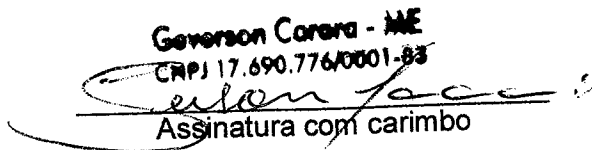 Geverson Carara - ME
CNPJ 17.690.776/0001-83
Assinatura com carimbo